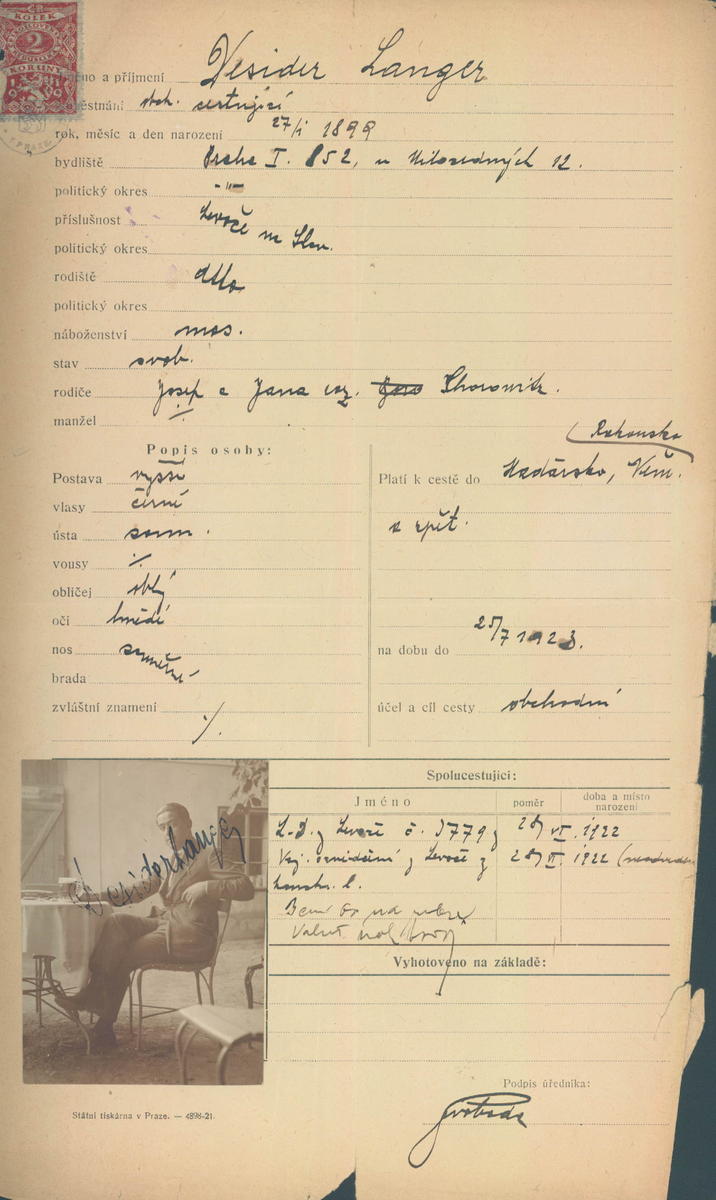 KOLEK
2
KORUNY
PRAZE
jméno a příjmení Desider Langer
městnání obch. cestující
rok, měsíc a den narození 27/I 1899
bydliště Praha I. 852, u Milosrdných 12.
politický okres -"-
příslušnost Levoče na Slov.
politický okres
rodiště dtto
politický okres
náboženství mos.
stav svob.
rodiče Josef a Jana roz. Horowitz.
manžel ./.
Popis osoby:
Postava vyšší
vlasy černé
ústa soum.
vousy ./.
obličej oblý
oči hnědé
nos souměrné
brada
zvláštní znamení ./.
(Rakousko
Platí k cestě do Maďarsko, Něm.
a zpět.
na dobu do 25/7 1923.
účel a cíl cesty obchodní
Spolucestující:
Jméno poměr doba a místo narození
L-D. z Levoče č. 1779 z 28/VI. 1922
Voj. osvědčení z Levoče z 28/VI. 1922
Desider Langer
Vyhotoveno na základě:
Podpis úředníka:
Svoboda
Státní tiskárna v Praze. — 4898-21.